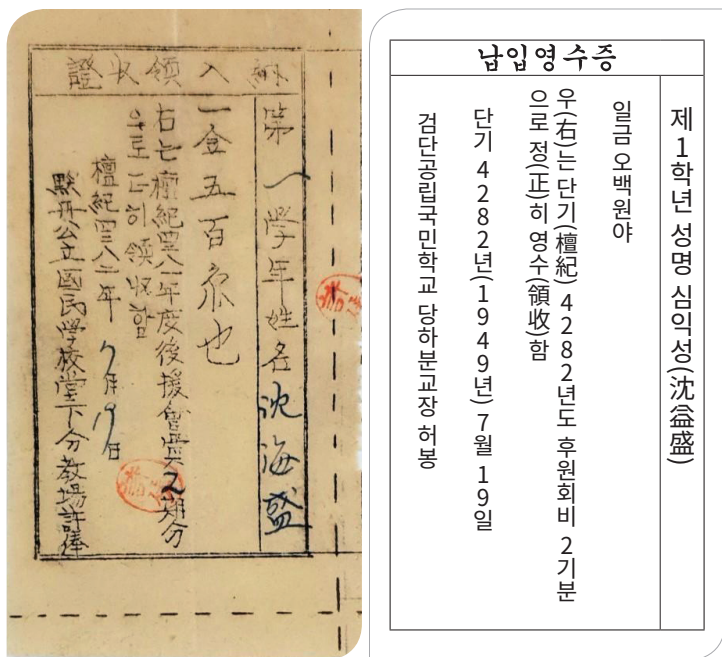 納入領收證
第一學年姓名 沈海盛
一金五百 也
右는檀紀 年度後援會費2期分
으로正히領收함
檀紀 年 7月19日
黔丹公立國民學校堂下分教場許
납입영수증
제1학년 성명 심익성(沈益盛)
일금 오백원야
우(右)는 단기(檀紀) 4282년도 후원회비 2기분
으로 정(正)히 영수(領收)함
단기 4282년(1949년) 7월 19일
검단공립국민학교 당하분교장 허봉